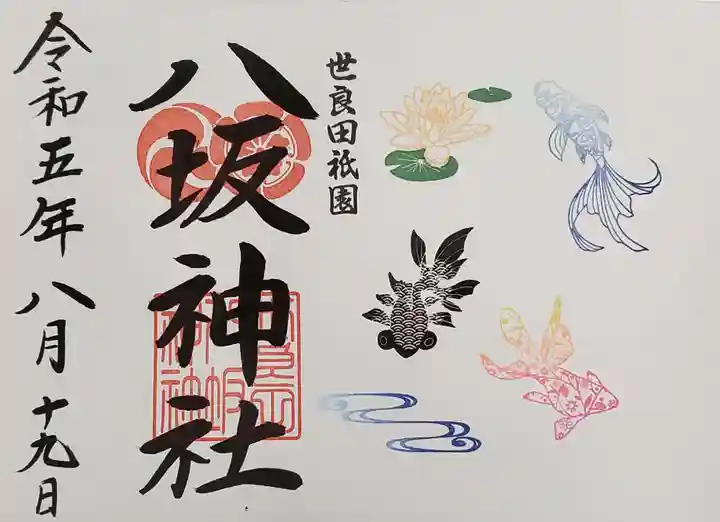 世良田祇園
八坂神社
令和五年八月十九日